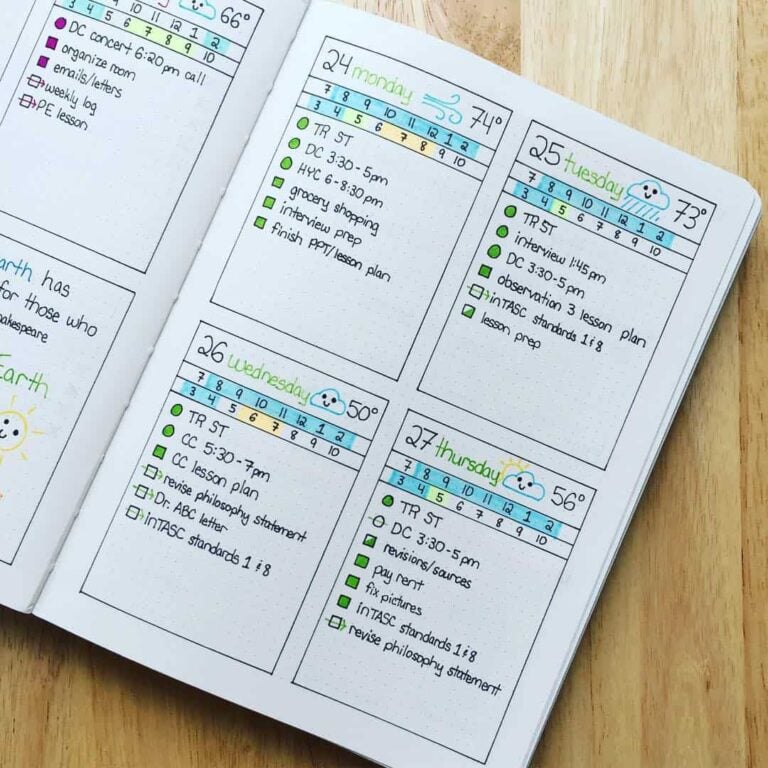 66°
9 10 11 12 1 2
3 4 5 6 7 8 9 10
DC concert 6:20 pm call
organize room
emails/letters
weekly log
PE lesson
arth has
for those who
akespeare
Earth
24 monday 74°
7 8 9 10 11 12 1 2
3 4 5 6 7 8 9 10
TR ST
DC 3:30-5pm
HYC 6-8:30pm
grocery shopping
interview prep
finish PPT/lesson plan
25 tuesday 73°
7 8 9 10 11 12 1 2
3 4 5 6 7 8 9 10
TR ST
interview 1:45pm
DC 3:30-5pm
observation 3 lesson plan
inTASC standards 1 & 8
lesson prep
26 wednesday 50°
7 8 9 10 11 12 1 2
3 4 5 6 7 8 9 10
TR ST
CC 5:30-7pm
CC lesson plan
revise philosophy statement
Dr. ABC letter
inTASC standards 1 & 8
27 thursday 56°
7 8 9 10 11 12 1 2
3 4 5 6 7 8 9 10
TR ST
DC 3:30-5pm
revisions/sources
pay rent
fix pictures
inTASC standards 1 & 8
revise philosophy statement